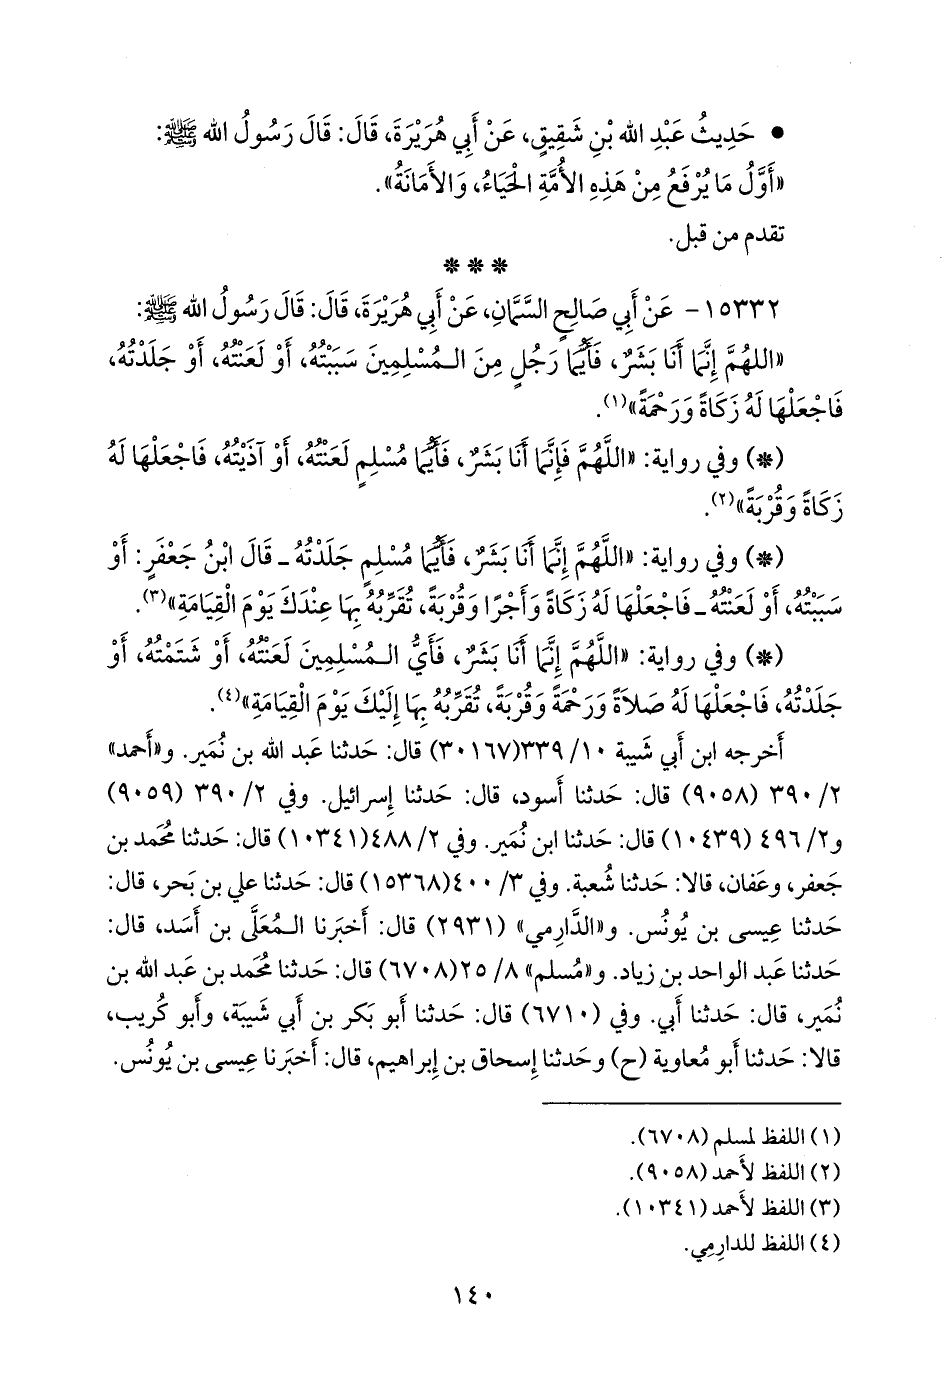 • حَدِيثُ عَبْدِ الله بْنِ شَقِيقٍ، عَنْ أَبِي هُرَيْرَةَ، قَالَ: قَالَ رَسُولُ الله ﷺ:
«أَوَّلُ مَا يُرْفَعُ مِنْ هَذِهِ الأُمَّةِ الْحَيَاءُ، وَالأَمَانَةُ».
تقدم من قبل.
* * *
١٥٣٣٢- عَنْ أَبِي صَالِحٍ السَّمَّانِ، عَنْ أَبِي هُرَيْرَةَ، قَالَ: قَالَ رَسُولُ الله ﷺ:
«اللهُمَّ إِنَّمَا أَنَا بَشَرٌ، فَأَيُّمَا رَجُلٍ مِنَ الـمُسْلِمِينَ سَبَبْتُهُ، أَوْ لَعَنْتُهُ، أَوْ جَلَدْتُهُ،
فَاجْعَلْهَا لَهُ زَكَاةً وَرَحْمَةً»(١).
(*) وفي رواية: «اللَّهُمَّ فَإِنَّمَا أَنَا بَشَرٌ، فَأَيُّمَا مُسْلِمٍ لَعَنْتُهُ، أَوْ آذَيْتُهُ، فَاجْعَلْهَا لَهُ
زَكَاةً وَقُرْبَةً»(٢).
(*) وفي رواية: «اللَّهُمَّ إِنَّمَا أَنَا بَشَرٌ، فَأَيُّمَا مُسْلِمٍ جَلَدْتُهُ ـ قَالَ ابْنُ جَعْفَرٍ: أَوْ
سَبَبْتُهُ، أَوْ لَعَنْتُهُ ـ فَاجْعَلْهَا لَهُ زَكَاةً وَأَجْرًا وَقُرْبَةً، تُقَرِّبُهُ بِهَا عِنْدَكَ يَوْمَ الْقِيَامَةِ»(٣).
(*) وفي رواية: «اللَّهُمَّ إِنَّمَا أَنَا بَشَرٌ، فَأَيُّ الـمُسْلِمِينَ لَعَنْتُهُ، أَوْ شَتَمْتُهُ، أَوْ
جَلَدْتُهُ، فَاجْعَلْهَا لَهُ صَلاَةً وَرَحْمَةً وَقُرْبَةً، تُقَرِّبُهُ بِهَا إِلَيْكَ يَوْمَ الْقِيَامَةِ»(٤).
أَخرجه ابن أَبي شَيبة ١٠/ ٣٣٩(٣٠١٦٧) قال: حَدثنا عَبد الله بن نُمَير. و«أَحمد»
٢/ ٣٩٠ (٩٠٥٨) قال: حَدثنا أَسود، قال: حَدثنا إِسرائيل. وفي ٢/ ٣٩٠ (٩٠٥٩)
و٢/ ٤٩٦ (١٠٤٣٩) قال: حَدثنا ابن نُمَير. وفي ٢/ ٤٨٨(١٠٣٤١) قال: حَدثنا مُحمد بن
جَعفر، وعَفان، قالا: حَدثنا شُعبة. وفي ٣/ ٤٠٠(١٥٣٦٨) قال: حَدثنا علي بن بَحر، قال:
حَدثنا عِيسى بن يُونُس. و«الدَّارِمي» (٢٩٣١) قال: أَخبَرنا الـمُعَلَّى بن أَسَد، قال:
حَدثنا عَبد الواحد بن زياد. و«مُسلم» ٨/ ٢٥(٦٧٠٨) قال: حَدثنا مُحمد بن عَبد الله بن
نُمَير، قال: حَدثنا أَبي. وفي (٦٧١٠) قال: حَدثنا أَبو بَكر بن أَبي شَيبَة، وأَبو كُريب،
قالا: حَدثنا أَبو مُعاوية (ح) وحَدثنا إِسحاق بن إِبراهيم، قال: أَخبَرنا عِيسى بن يُونُس.
(١) اللفظ لمسلم (٦٧٠٨).
(٢) اللفظ لأَحمد (٩٠٥٨).
(٣) اللفظ لأَحمد (١٠٣٤١).
(٤) اللفظ للدارِمِي.
١٤٠